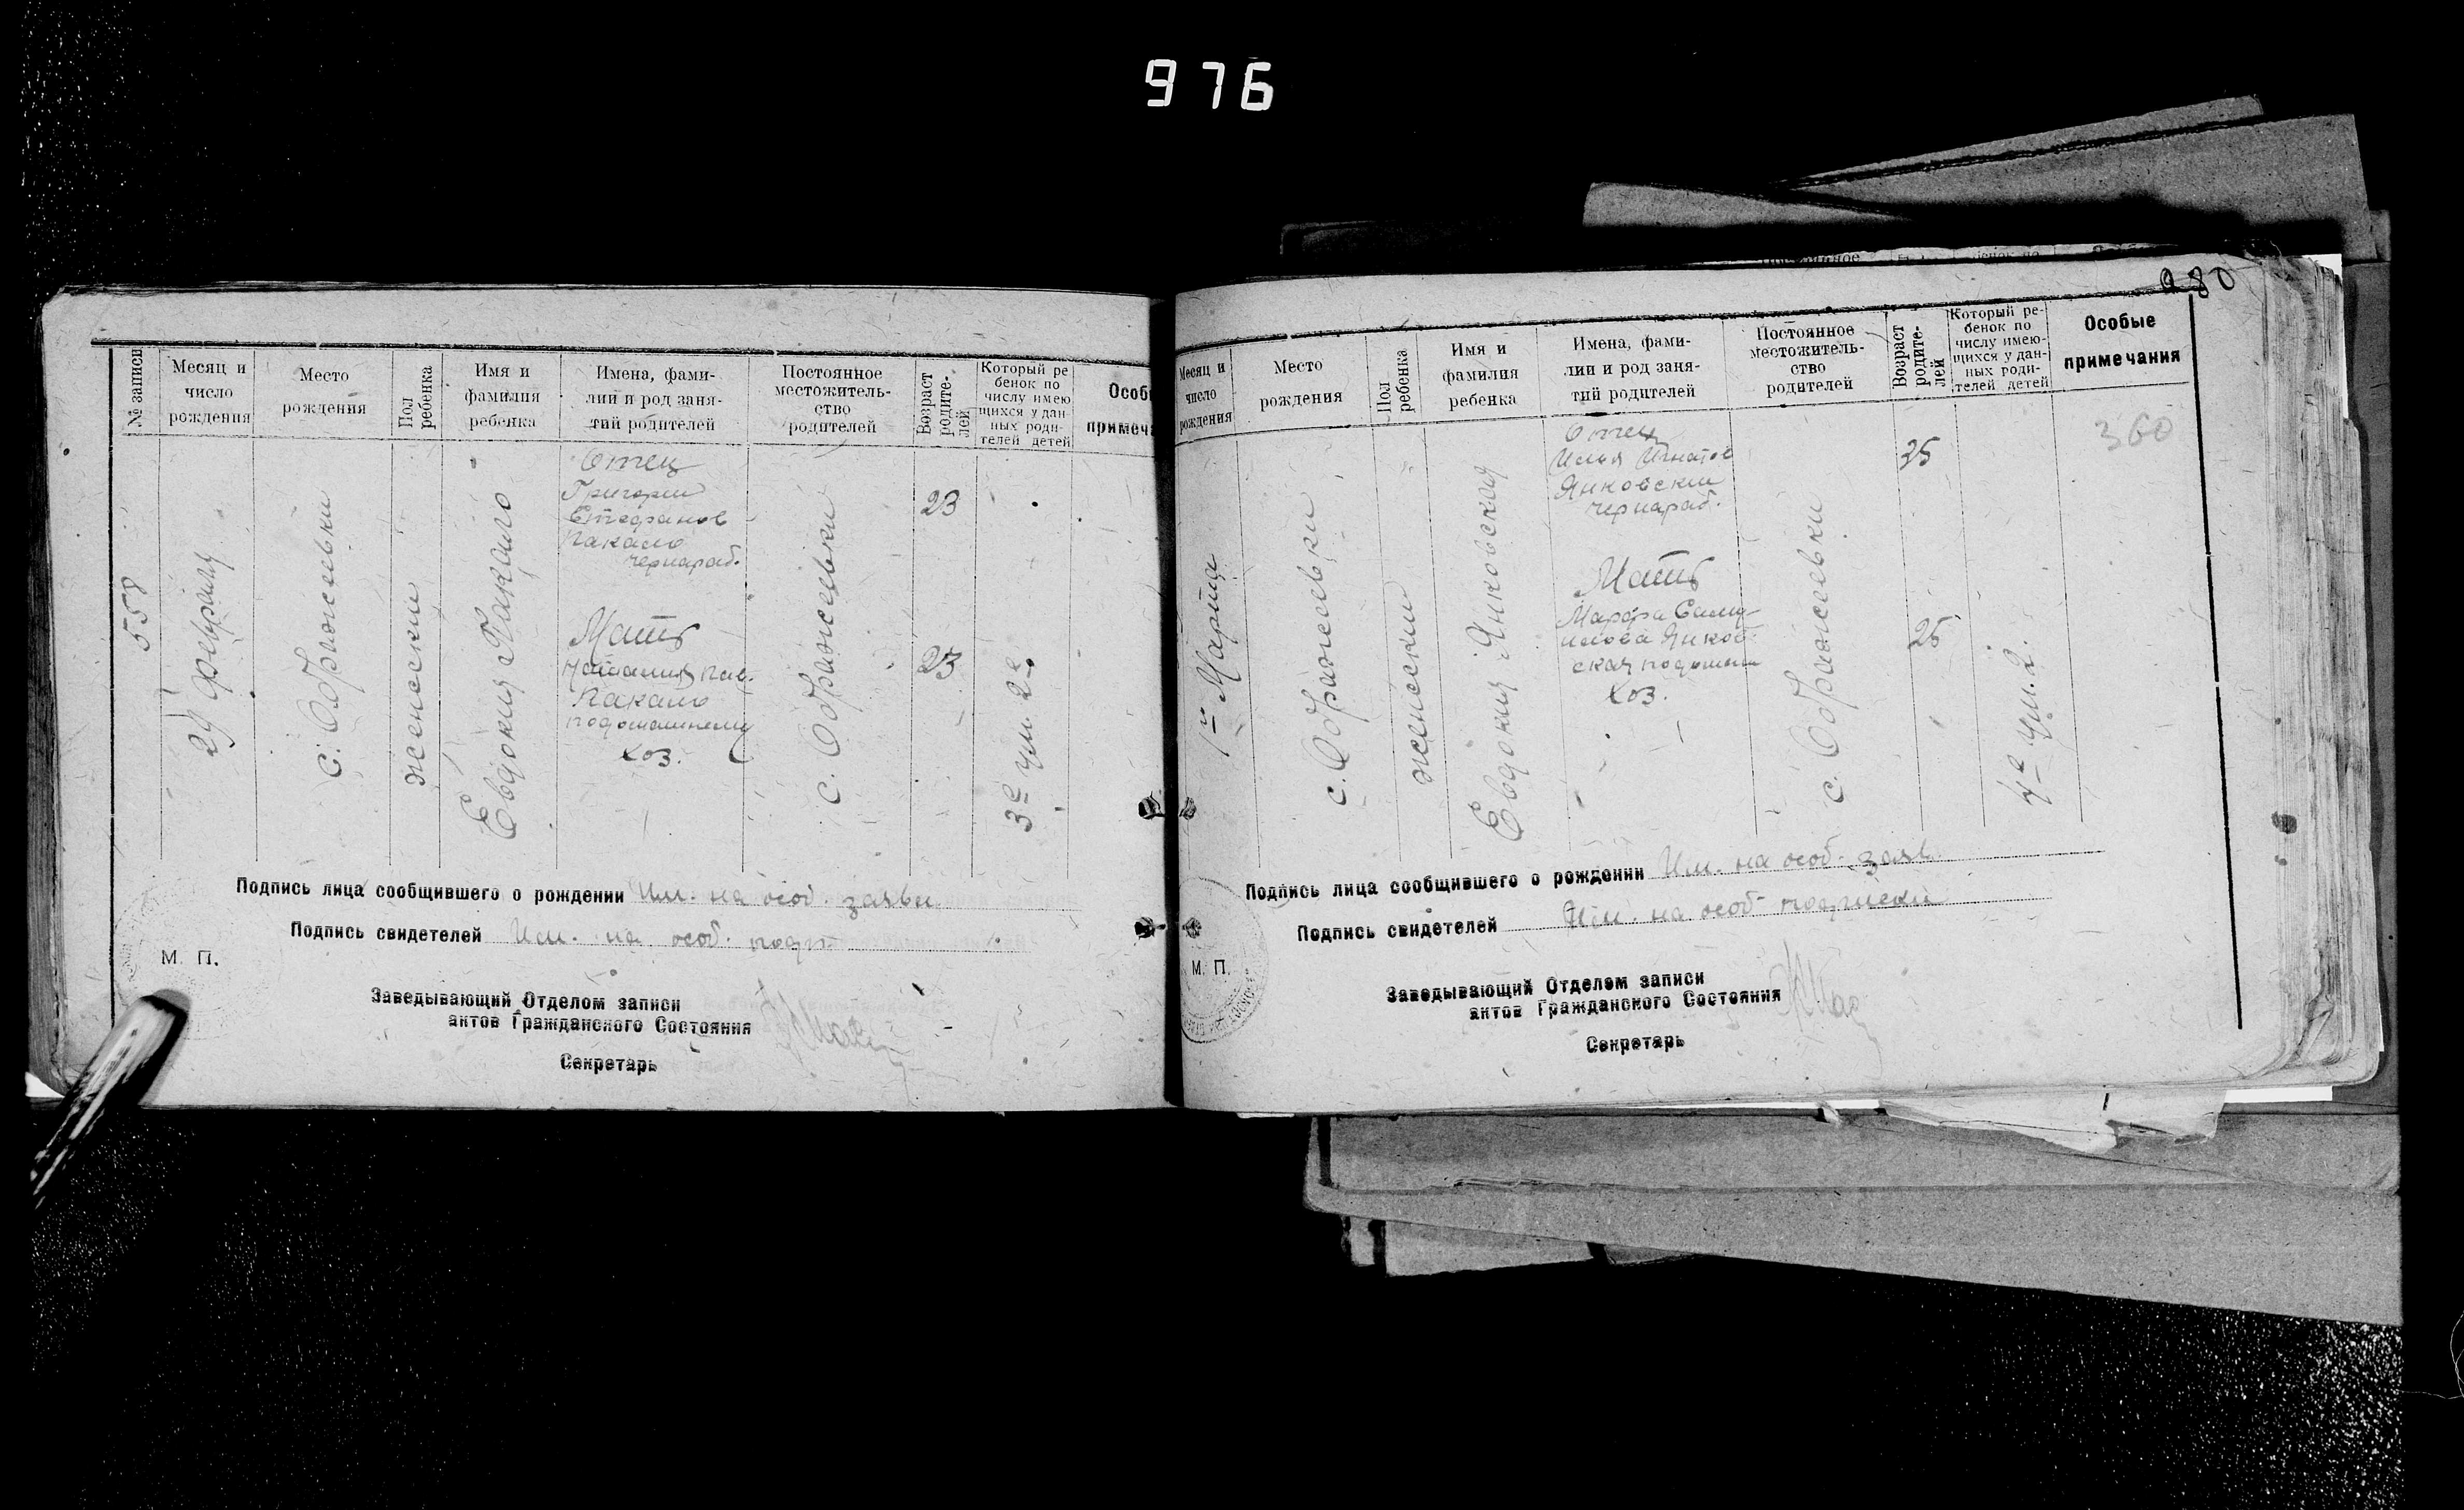 976
№ записи
Месяц и
число
рождения
Место
рождения
Пол
ребенка
Имя и
фамилия
ребенка
Имена, фами-
лии и род заня-
тий родителей
Постоянное
местожитель-
ство
родителей
Возраст
родите-
лей
Который ре
бенок по
числу имею
щихся у дан-
ных роди-
телей детей
Особ
примеча
558
29 февраля
с. Ображеевки
женский
Евдокия Пакало
Отец
Григорий
Стефанов
Пакало
чернараб.
Мать
Наталия Пав.
Пакало
хоз.
с. Ображеевки
23
23
3е ум. 2е
Подпись лица сообщившего о рождении Им. на особ. заявл.
Подпись свидетелей Им. на особ. подп
М. П.
Заведывающий Отделом записи
актов Гражданского Состояния
Секретарь
280
Месяц и
число
рождения
Место
рождения
Пол
ребенка
Имя и
фамилия
ребенка
Имена, фами-
лии и род заня-
тий родителей
Постоянное
местожитель-
ство
родителей
Возраст
родите-
лей
Который ре-
бенок по
числу имею-
щихся у дан-
ных роди-
телей детей
Особые
примечания
360
1го Марта
с. Ображеевки
женский
Евдокия Янковская
Отец
Илья Игнатов
Янковский
чернараб.
Мать
Марфа Сами
лова Янков
ская
хоз.
с. Ображеевки
25
4е ум. 2.
Подпись лица сообщившего о рождении Им. на особ. заяв.
Подпись свидетелей Им. на особ. подписки
М. П.
Заведывающий Отделом записи
актов Гражданского Состояния
Секретарь